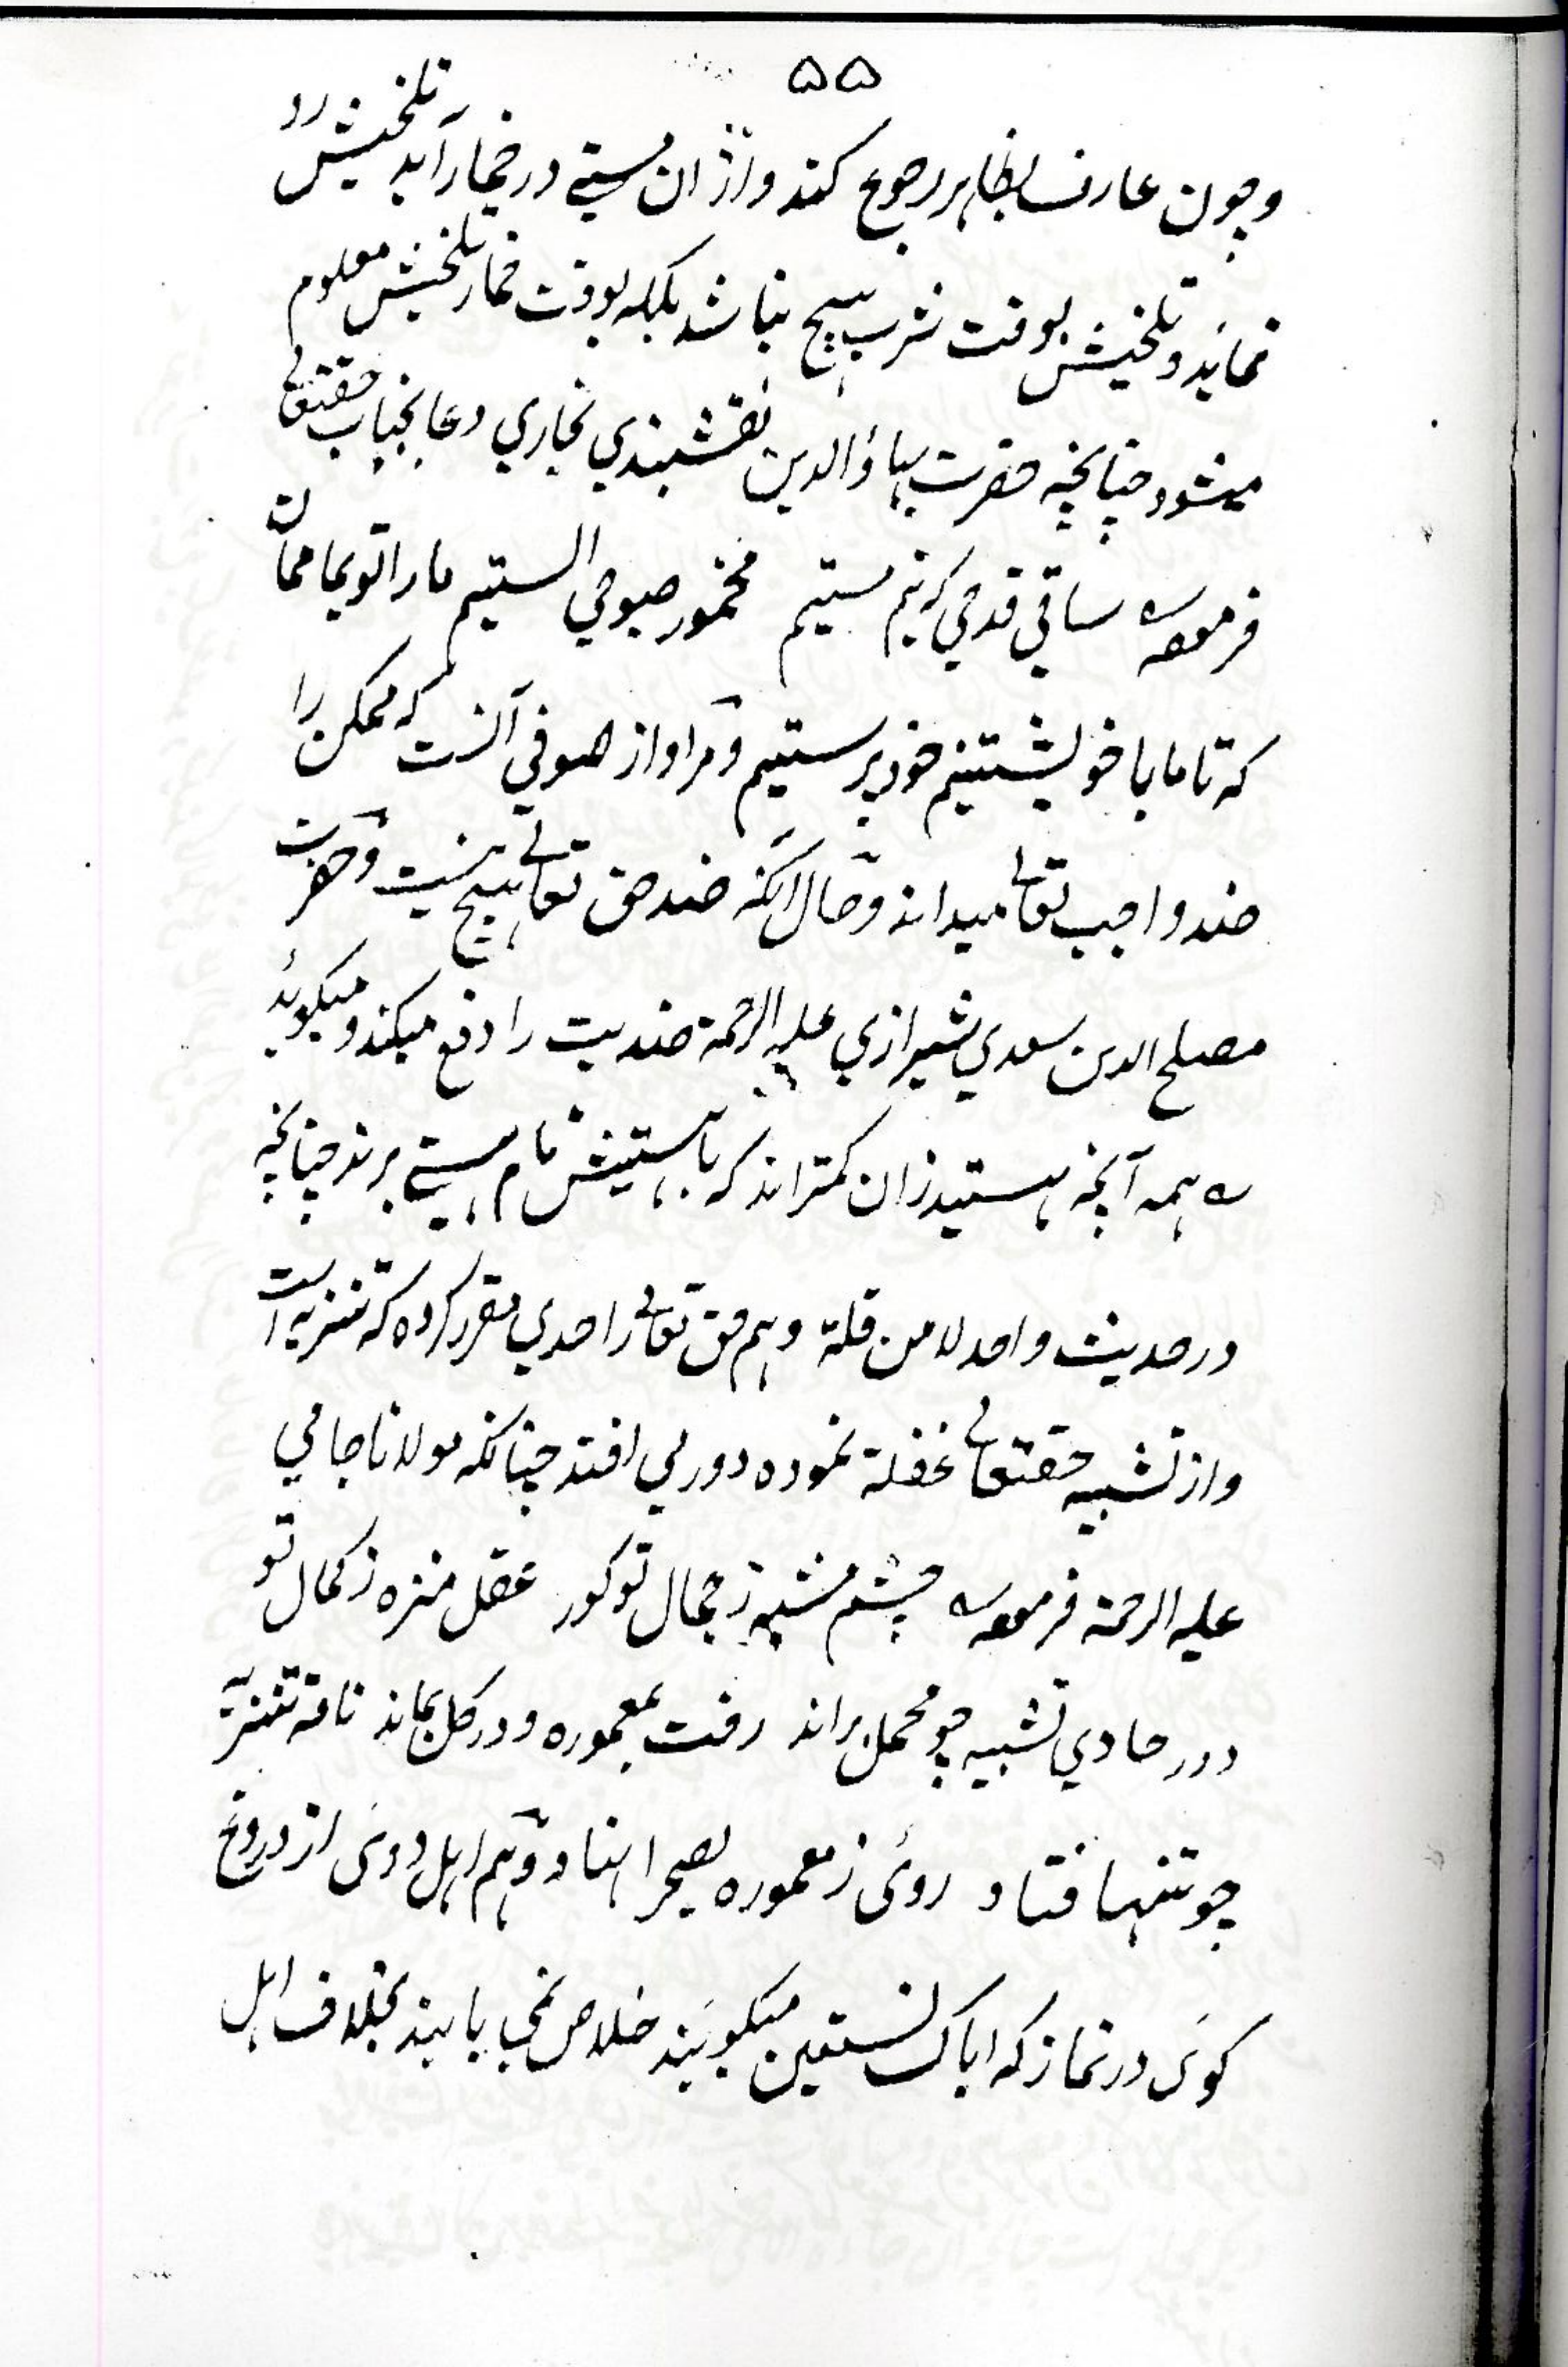 ۵۵
وچون عارف بظاہر رجوع کند وازان مستی در خمار آید تلخیش رو
نماید و تلخیش بوقت شرب ہیچ نباشد بلکہ بوقت خمار تلخیش معلوم
میشود چنانچہ حضرت بہاؤالدین نقشبندی بخاری دعا بجناب حقتعالی
فرمودہ ساقی قدحی کہ نیم مستیم مخمور صبوحی الستیم مارا تو بما ممان
کہ تا ما با خویشتنیم خود پرستیم و مراد از صوفی آنست کہ ممکن را
ضد واجب تعالی میداند و حال آنکہ ضد حق تعالی ہیچ نیست و حضرت
مصلح الدین سعدی شیرازی علیہ الرحمۃ ضدیت را دفع میکند و میگوید
ہمہ آنچہ ہستند زان کمتراند کہ با ہستیش نام ہستی برند چنانچہ
در حدیث واحد لا من قلة وہم حق تعالی را حدی مقرر کردہ کہ تنزیہ است
واز تشبیہ حقتعالی غفلة نمودہ دور می افتد چنانکہ مولانا جامی
علیہ الرحمۃ فرمودہ چشم مشبہ ز جمال تو کور عقل منزہ ز کمال تو
دور حادی تشبیہ چو محمل براند رفت بمعمورہ و در گل بماند ناقہ تنزیہ
چو تنہا فتاد روئی ز معمورہ بصحرا نہاد وہم اہل دوئی از دروغ
گوئی در نماز کہ ایاک نستعین میگویند خلاص نمی یابند بخلاف اہل